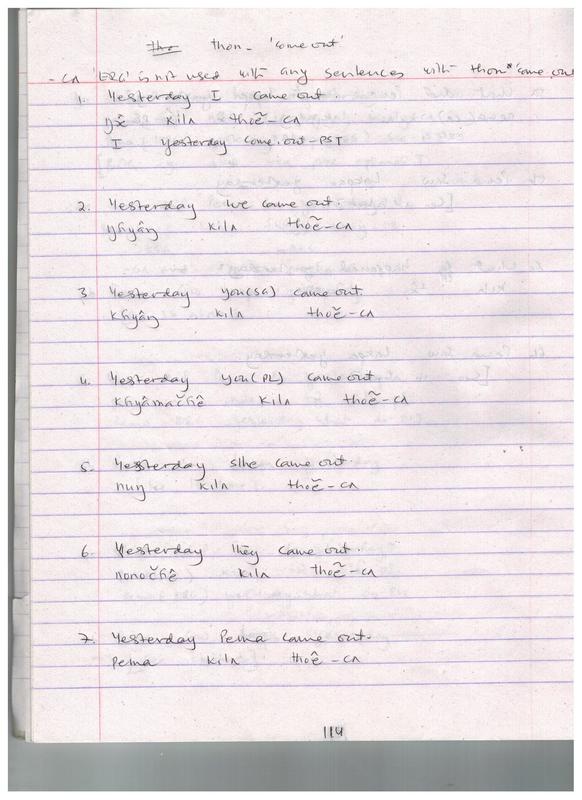 thon- 'come out'
- cʌ 'ERG' is not used with any sentences with thon 'come out
1. Yesterday I came out
kilʌ thoẽ - cʌ
I yesterday come.out-PST
2. Yesterday we came out.
kilʌ thoẽ - cʌ
3 Yesterday you(SG) came out.
khyâŋ kilʌ thoẽ - cʌ
4. Yesterday you(PL) came out
khyâmačhê kilʌ thoẽ - cʌ
5. Yesterday s/he came out.
nuŋ kilʌ thoẽ - cʌ
6. Yesterday they came out.
nonočhê kilʌ thoẽ - cʌ
7. Yesterday Pema came out.
Pema kilʌ thoê - cʌ
114